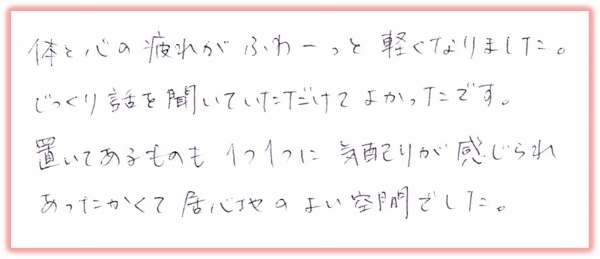 体と心の疲れがふわーっと軽くなりました。
じっくり話を聞いていただけてよかったです。
置いてあるものも1つ1つに気配りが感じられ
あったかくて居心地のよい空間でした。